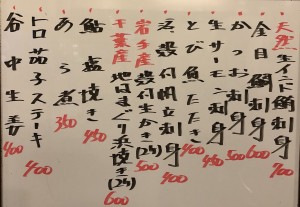 天然生インド鯛刺身 700
金目鯛刺身 600
かつお刺身 500
生サーモン刺身 450
とび魚たたき 400
殻付帆立刺身 400
岩手産殻付生かき(2ケ) 500
千葉産地はまぐり浜焼き(2ケ) 600
鮎塩焼き 450
あら煮 350
トロ茄子ステーキ 400
谷中生姜 400